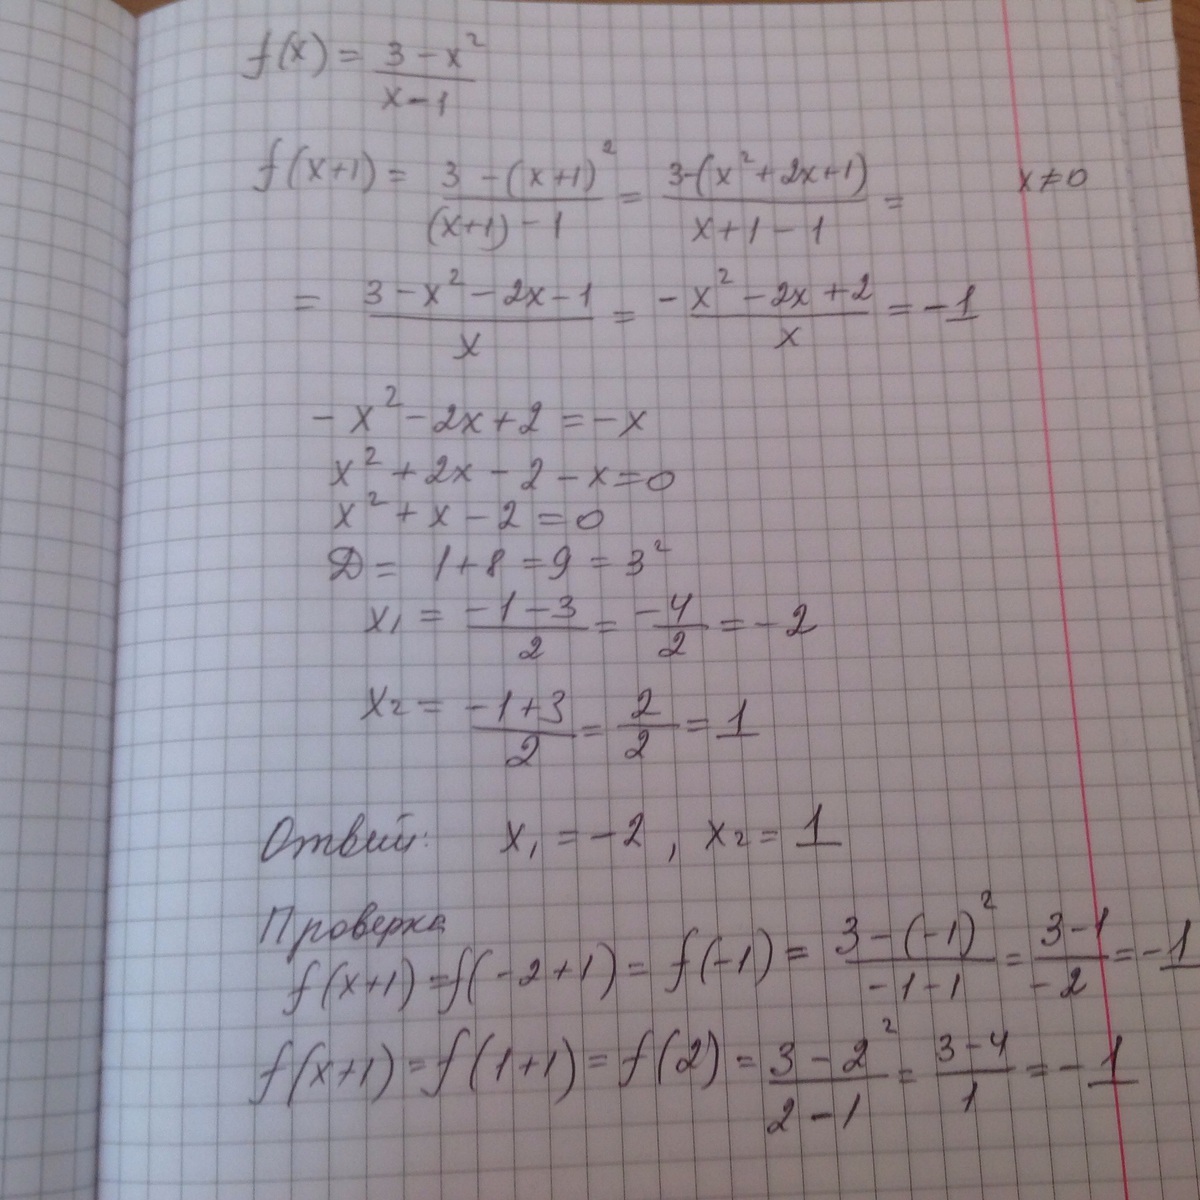 f(x) = (3 - x²)/(x - 1)
f(x+1) = (3 - (x+1)²)/((x+1) - 1) = (3-(x²+2x+1))/(x+1-1) = x ≠ 0
= (3 - x² - 2x - 1)/x = (-x² - 2x + 2)/x = -1
-x² - 2x + 2 = -x
x² + 2x - 2 - x = 0
x² + x - 2 = 0
Д = 1+8 = 9 = 3²
x₁ = (-1-3)/2 = -4/2 = -2
x₂ = (-1+3)/2 = 2/2 = 1
Ответ: x₁ = -2, x₂ = 1
Проверка
f(x+1) = f(-2+1) = f(-1) = (3-(-1)²)/(-1-1) = (3-1)/-2 = -1
f(x+1) = f(1+1) = f(2) = (3-2²)/(2-1) = (3-4)/1 = -1